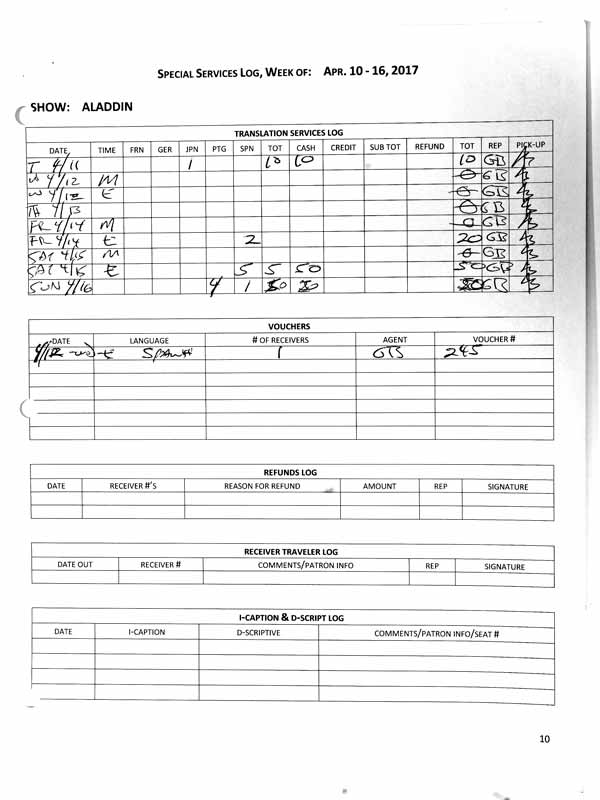 SPECIAL SERVICES LOG, WEEK OF: APR. 10 - 16, 2017
SHOW: ALADDIN
TRANSLATION SERVICES LOG
DATE TIME FRN GER JPN PTG SPN TOT CASH CREDIT SUB TOT REFUND TOT REP PICK-UP
T 4/11 1 10 10 10 GB
W 4/12 M 0 GB
W 4/12 E 0 GB
TH 4/13 0 GB
FR 4/14 M 0 GB
FR 4/14 E 2 20 GB
SAT 4/15 M 0 GB
SAT 4/15 E 5 5 50 50 GB
SUN 4/16 4 1 50 GB
VOUCHERS
DATE LANGUAGE # OF RECEIVERS AGENT VOUCHER #
4/12 E SPANISH 1 GTS 245
REFUNDS LOG
DATE RECEIVER #'S REASON FOR REFUND AMOUNT REP SIGNATURE
RECEIVER TRAVELER LOG
DATE OUT RECEIVER # COMMENTS/PATRON INFO REP SIGNATURE
I-CAPTION & D-SCRIPT LOG
DATE I-CAPTION D-SCRIPTIVE COMMENTS/PATRON INFO/SEAT #
10